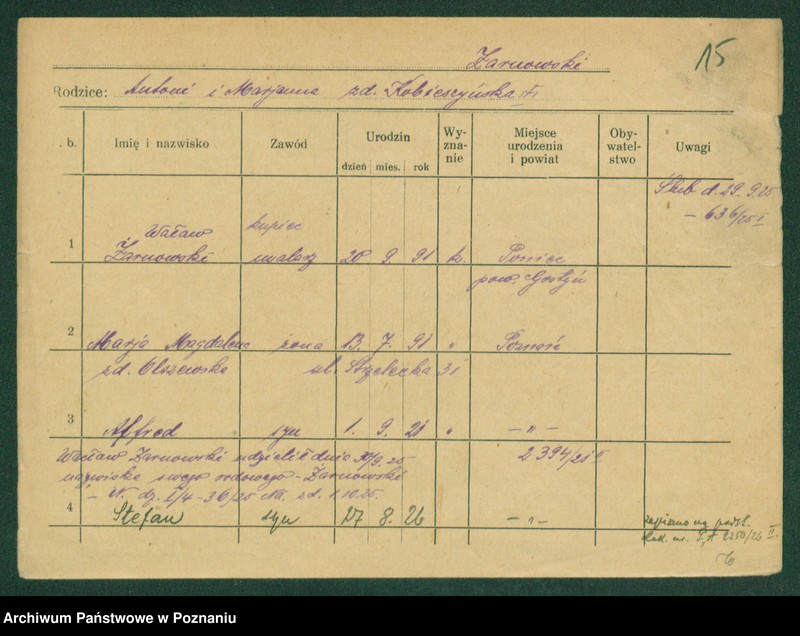 Żarnowski
15
Rodzice: Antoni i Marjanna zd. Kobieszyńska
. b.
Imię i nazwisko
Zawód
Urodzin
dzień mies. rok
Wy-
zna-
nie
Miejsce
urodzenia
i powiat
Oby-
watel-
stwo
Uwagi
Ślub d. 29. 9. 25
– 636/25 I
1
Wacław
Żarnowski
kupiec
malarz
20 9. 91
k.
Poniec
pow. Gostyń
2
Marja Magdalena żona 13. 7. 91 " Poznań
zd. Olszewska ul. Strzelecka 31
3
Alfred syn 1. 9. 21 " – " –
2394/21 II
Wacław Żarnowski udzielił dnia /9. 25
nazwiska swego rodowego – Żarnowski
– N. dz. I/4 – 36/25 zd. 1.10.25.
4
Stefan syn 27 8. 26 – " –
zapisano na podst.
2250/26 II.
Archiwum Państwowe w Poznaniu